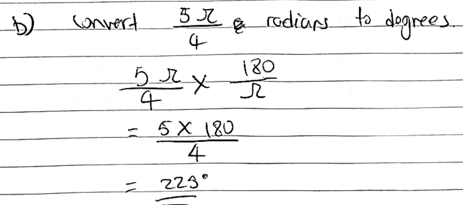 b) convert 5π/4 radians to degrees.
5π/4 × 180/π
= 5 × 180/4
= 223°